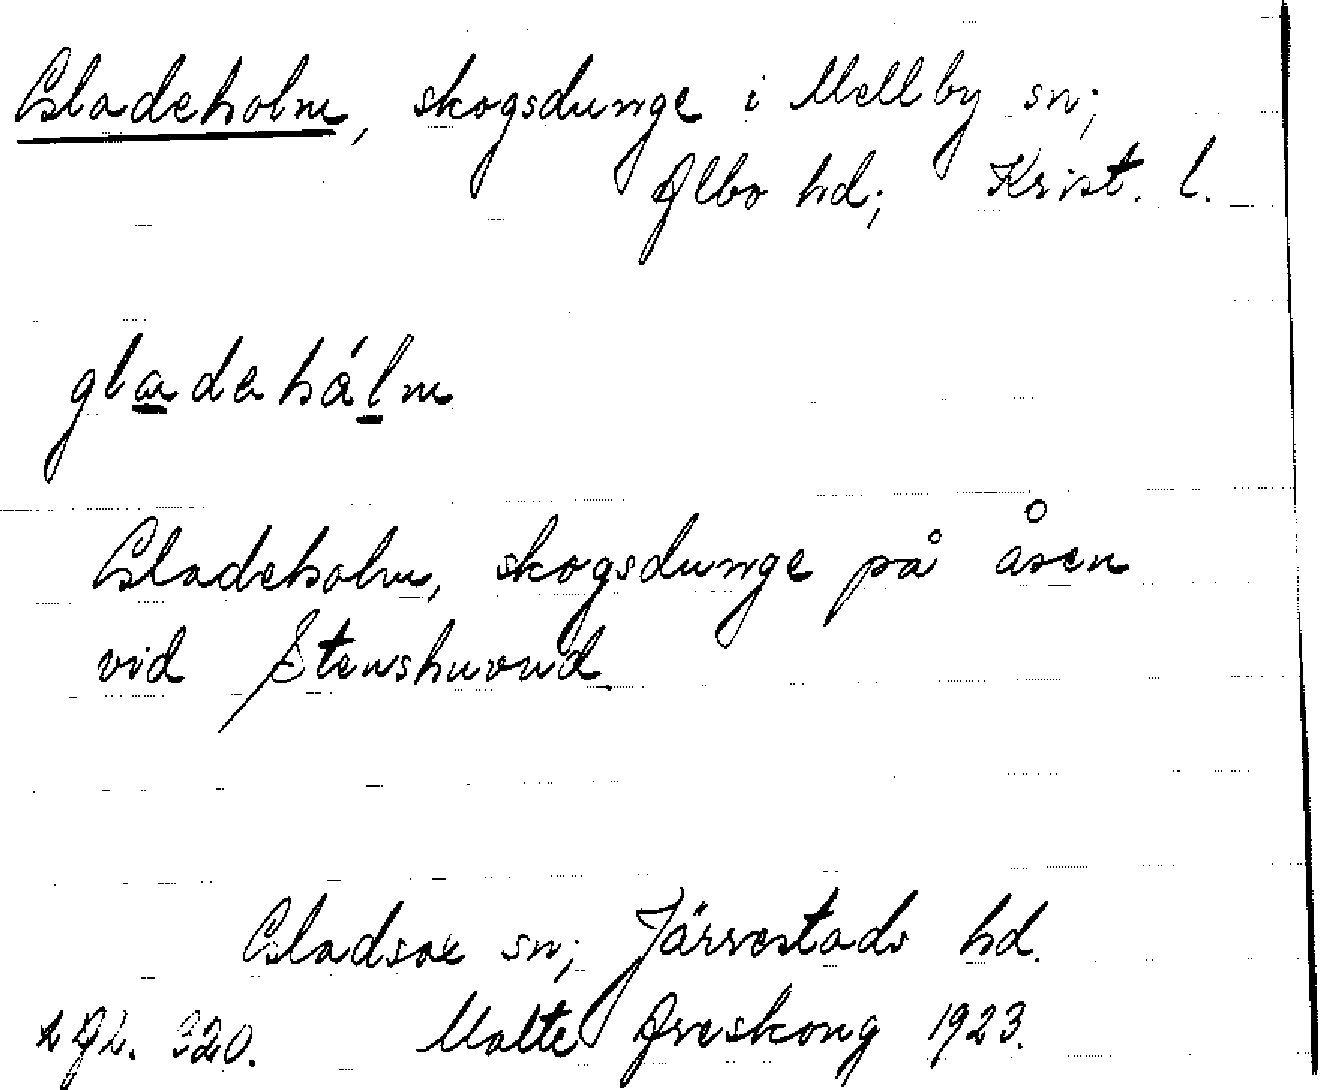 Gladeholm, skogsdunge i Mellby sn;
Albo hd; Krist. l.
gladahålm
Gladeholm, skogsdunge på åsen
vid Stenshuvud
Gladsax sn; Järrestads hd.
320. Malte Areskoug 1923.